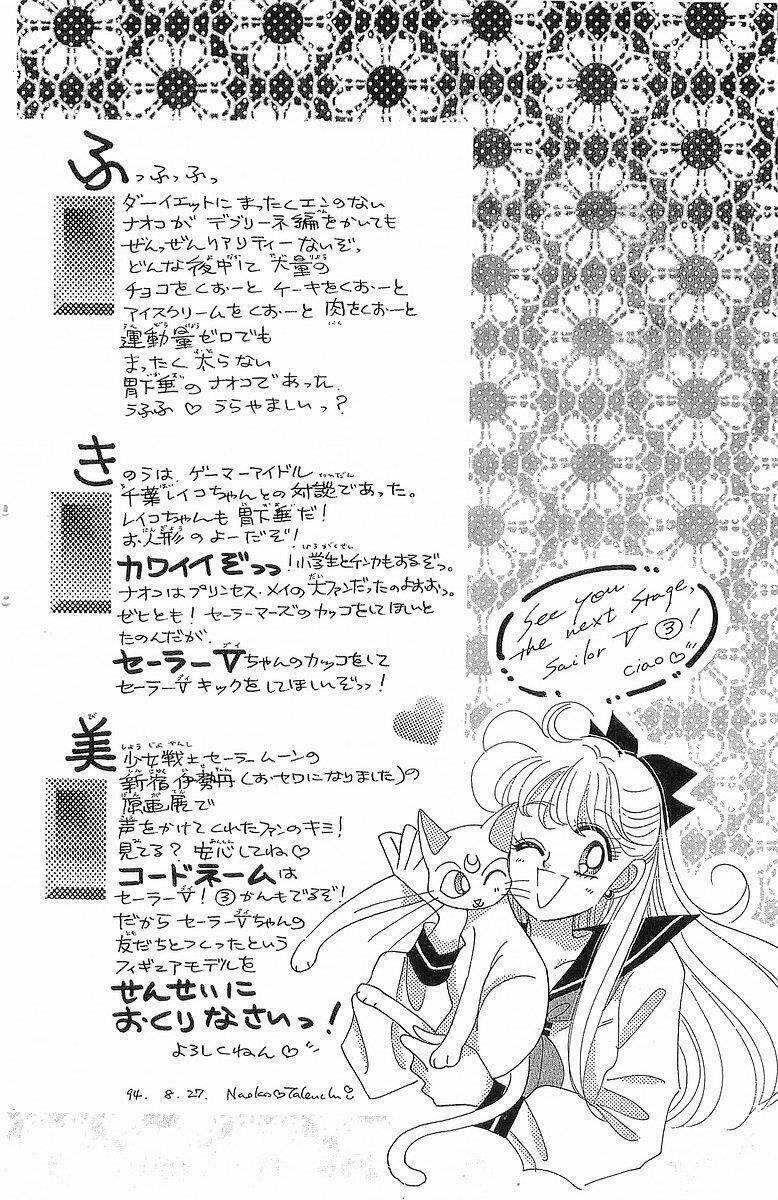 ふっふっふっ
ダーイエットに まったくエンのない
ナオコが デブリーネ編をかいても
ぜんっぜんリアリティーないぞっ
どんな夜中に 大量の
チョコをくおーと ケーキをくおーと
アイスクリームをくおーと 肉をくおーと
運動量ゼロでも
まったく 太らない
胃下垂の ナオコであった.
うふふ ♡ うらやましいっ?
きのうは ゲーマーアイドル
千葉レイコちゃんとの対談であった。
レイコちゃんも 胃下垂だ!
お人形のよーだぞ!
カワイイぞっっ!小学生とケンカもするぞっ。
ナオコはプリンセス・メイの大ファンだったのよおおっ。
ゼヒとも! セーラーマーズのカッコをしてほしいと
たのんだが.
セーラーVちゃんのカッコをして
セーラーVキックをしてほしいぞっっ!
美少女戦士セーラームーンの
新宿伊勢丹(おセワになりました)の
原画展で
声をかけてくれたファンのキミ!
見てる? 安心してね♡
コードネームは
セーラーV! ③かんもでるぞ!
だから セーラーVちゃんの
友だちとつくったという
フィギュアモデルを
せんせいに
おくりなさいっ!
よろしくねん♡
94. 8. 27. Naoko♡Takeuchi
See you
the next stage,
Sailor V ③!
ciao♡